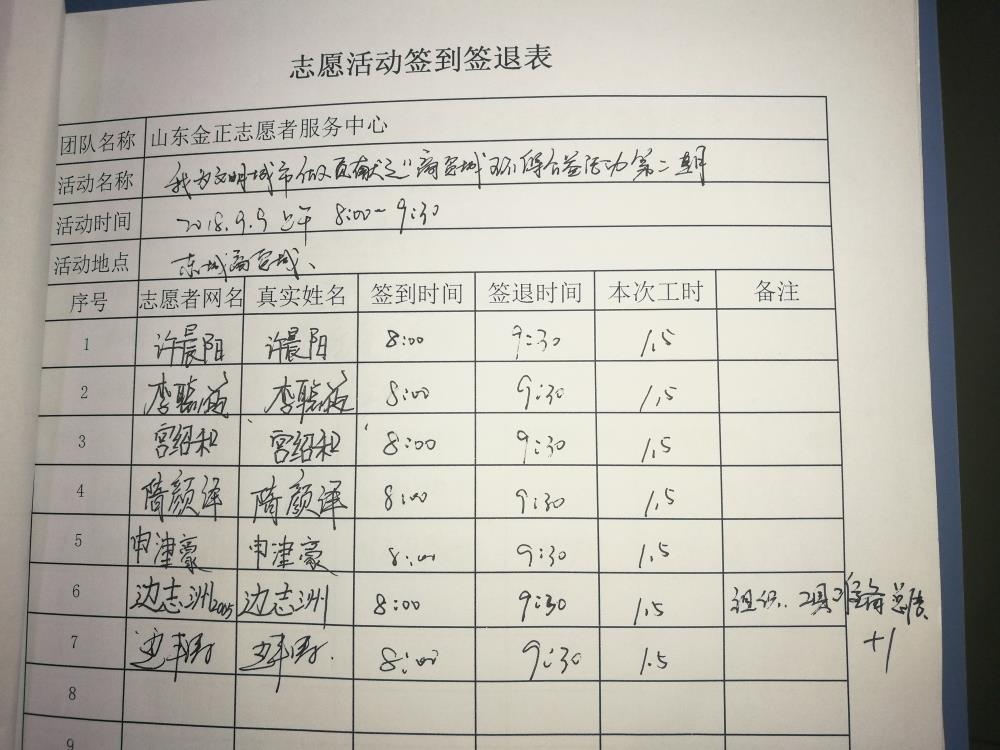 志愿活动签到签退表
团队名称 山东金正志愿者服务中心
活动名称 我为文明城市做贡献之"商贸城环保公益活动第二期
活动时间 2018.9.9 上午 8:00-9:30
活动地点 东城商贸城、
序号 志愿者网名 真实姓名 签到时间 签退时间 本次工时 备注
1 许晨阳 许晨阳 8:00 9:30 1.5
2 李 李 8:00 9:30 1.5
3 宫绍和 宫绍和 8:00 9:30 1.5
4 隋颜泽 隋颜泽 8:00 9:30 1.5
5 申津豪 申津豪 8:00 9:30 1.5
6 边志洲2005 边志洲 8:00 9:30 1.5 组织、工具准备 总结
+1
7 8:00 9:30 1.5
8
9